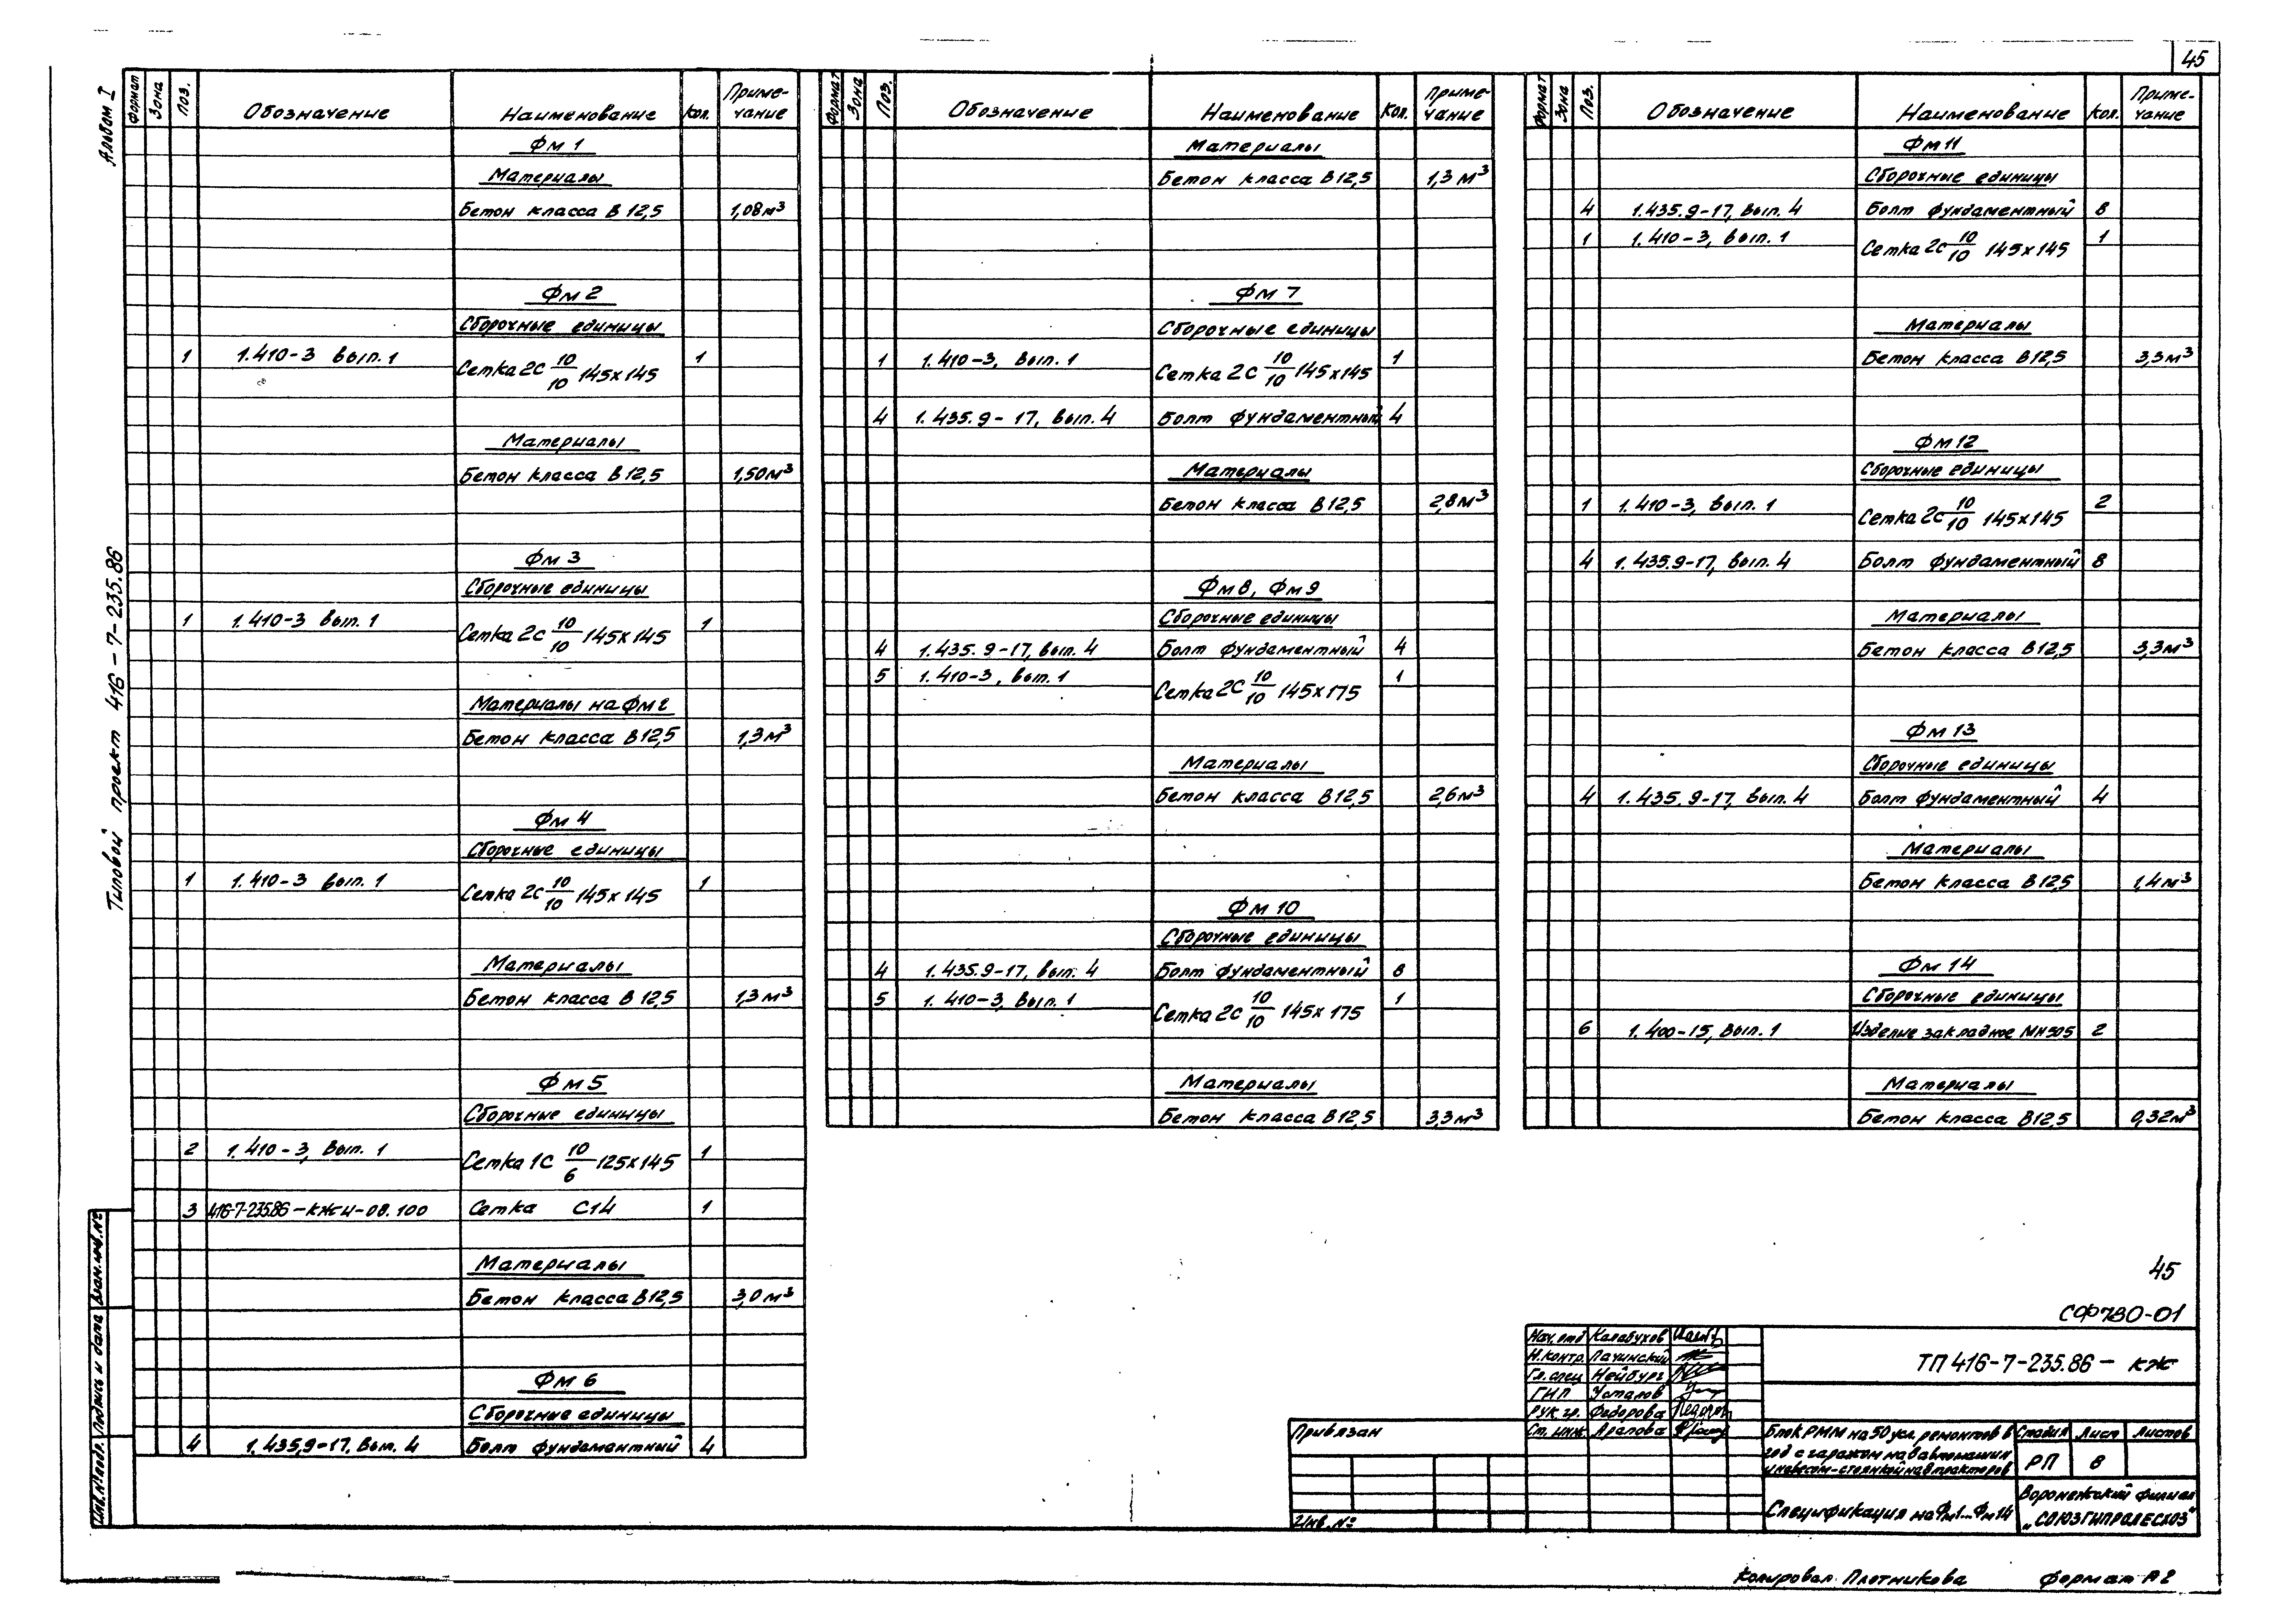 45
Альбом I
Типовой проект 416-7-235.86
Формат Зона Поз. Обозначение Наименование Кол. Приме-чание
Фм 1
Материалы
Бетон класса В 12,5 1,08 м³
Фм 2
Сборочные единицы
1 1.410-3 вып. 1 Сетка 2С 10/10 145х145 1
Материалы
Бетон класса В 12,5 1,50 м³
Фм 3
Сборочные единицы
1 1.410-3 вып. 1 Сетка 2С 10/10 145х145 1
Материалы на Фм 2
Бетон класса В 12,5 1,3 м³
Фм 4
Сборочные единицы
1 1.410-3 вып. 1 Сетка 2С 10/10 145х145 1
Материалы
Бетон класса В 12,5 1,3 м³
Фм 5
Сборочные единицы
2 1.410-3, вып. 1 Сетка 1С 10/6 125х145 1
3 416-7-235.86-КЖИ-08.100 Сетка С14 1
Материалы
Бетон класса В 12,5 3,0 м³
Фм 6
Сборочные единицы
4 1.435,9-17, вып. 4 Болт фундаментный 4
Формат Зона Поз. Обозначение Наименование Кол. Приме-чание
Материалы
Бетон класса В 12,5 1,3 м³
Фм 7
Сборочные единицы
1 1.410-3, вып. 1 Сетка 2С 10/10 145х145 1
4 1.435.9-17, вып. 4 Болт фундаментный 4
Материалы
Бетон класса В 12,5 2,8 м³
Фм 8, Фм 9
Сборочные единицы
4 1.435.9-17, вып. 4 Болт фундаментный 4
5 1.410-3, вып. 1 Сетка 2С 10/10 145х175 1
Материалы
Бетон класса В 12,5 2,6 м³
Фм 10
Сборочные единицы
4 1.435.9-17, вып. 4 Болт фундаментный 8
5 1.410-3, вып. 1 Сетка 2С 10/10 145х175 1
Материалы
Бетон класса В 12,5 3,3 м³
Формат Зона Поз. Обозначение Наименование Кол. Приме-чание
Фм 11
Сборочные единицы
4 1.435.9-17, вып. 4 Болт фундаментный 8
1 1.410-3, вып. 1 Сетка 2С 10/10 145х145 1
Материалы
Бетон класса В 12,5 3,3 м³
Фм 12
Сборочные единицы
1 1.410-3, вып. 1 Сетка 2С 10/10 145х145 2
4 1.435.9-17, вып. 4 Болт фундаментный 8
Материалы
Бетон класса В 12,5 3,3 м³
Фм 13
Сборочные единицы
4 1.435.9-17, вып. 4 Болт фундаментный 4
Материалы
Бетон класса В 12,5 1,4 м³
Фм 14
Сборочные единицы
6 1.400-15, вып. 1 Изделие закладное МН505 2
Материалы
Бетон класса В 12,5 0,32 м³
Инв. № подл. Подпись и дата Взам. инв. №
45
СФ 780-01
Нач. отд Калабухов
Н. контр. Лачинский
Гл. спец Нейбург
ГИП Усталов
Рук. гр. Федорова
Ст. инж. Арапова
ТП 416-7-235.86- КЖ
Привязан
Инв. №
Блок РММ на 50 усл. ремонтов в
год с гаражом на 8 автомашин
и навесом-стоянкой на 8 тракторов
Стадия Лист Листов
РП 8
Спецификация на Фм1...Фм14
Воронежский филиал
„СОЮЗГИПРОЛЕСХОЗ"
Копировал Плотникова Формат А2